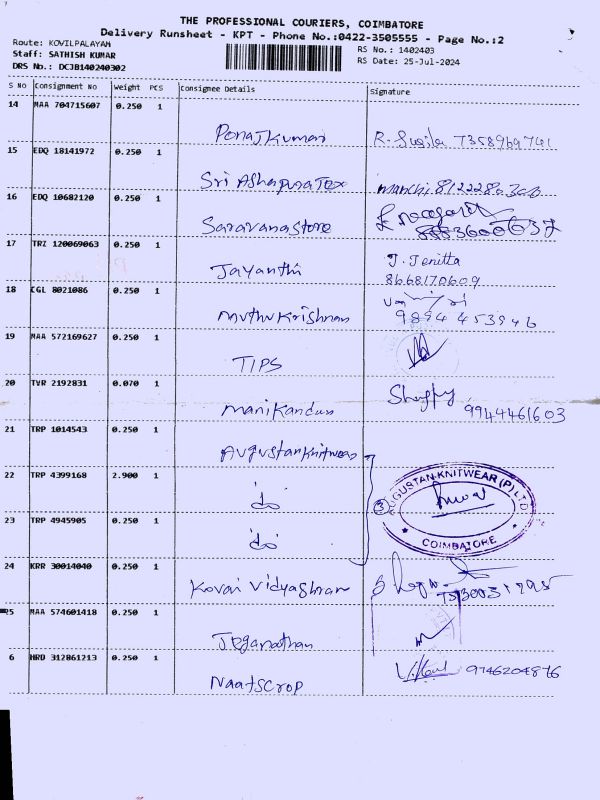 THE PROFESSIONAL COURIERS, COIMBATORE
Delivery Runsheet - KPT - Phone No.:0422-3505555 - Page No.:2
Route: KOVILPALAYAM
Staff: SATHISH KUMAR
DRS No.: DCJB140240302
RS No.: 1402403
RS Date: 25-Jul-2024
S No Consignment No Weight PCS Consignee Details Signature
14 MAA 704715607 0.250 1
Ponajkumar R. Susila 7358969741
15 EDQ 18141972 0.250 1
Sri Ashapura Tex
16 EDQ 10682120 0.250 1
Saravanastore
17 TRZ 120069063 0.250 1
Jayanthi J. Jenitta
8668170609
18 CGL 8021086 0.250 1
Muthukrishnan 9894 453946
19 MAA 572169627 0.250 1
TIPS
20 TVR 2192831 0.070 1
Manikandan 9944461603
21 TRP 1014543 0.250 1
AugustanKnitwear
22 TRP 4399168 2.900 1
do
AUGUSTAN KNITWEAR (P) LTD
3
COIMBATORE
23 TRP 4945905 0.250 1
do
24 KRR 30014040 0.250 1
Kovai Vidyashram
25 MAA 574601418 0.250 1
Jeganathan
6 HRD 312861213 0.250 1
Naatscrop 9746204876